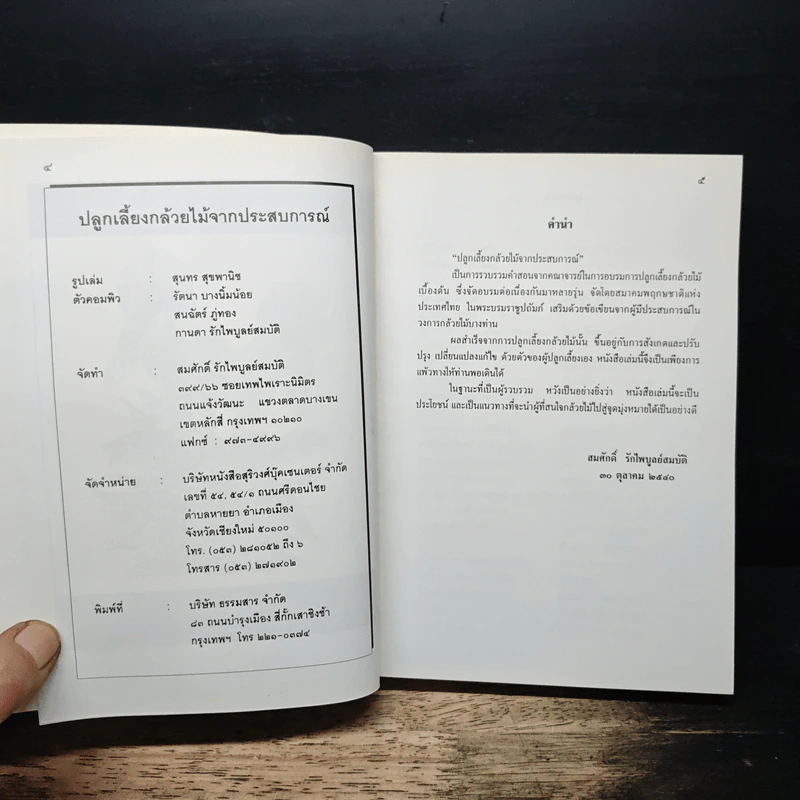 ๔
ปลูกเลี้ยงกล้วยไม้จากประสบการณ์
รูปเล่ม : สุนทร สุขพานิช
ตัวคอมพิว : รัตนา บางนิ้มน้อย
สนฉัตร์ ภู่ทอง
กานดา รักไพบูลย์สมบัติ
จัดทำ : สมศักดิ์ รักไพบูลย์สมบัติ
๓๙๙/๖๖ ซอยเทพไพเราะนิมิตร
ถนนแจ้งวัฒนะ แขวงตลาดบางเขน
เขตหลักสี่ กรุงเทพฯ ๑๐๒๑๐
แฟกซ์ : ๙๗๓-๔๙๙๖
จัดจำหน่าย : บริษัทหนังสือสุริวงศ์บุ๊คเซนเตอร์ จำกัด
เลขที่ ๕๔, ๕๔/๑ ถนนศรีดอนไชย
ตำบลหายยา อำเภอเมือง
จังหวัดเชียงใหม่ ๕๐๑๐๐
โทร. (๐๕๓) ๒๘๑๐๕๒ ถึง ๖
โทรสาร (๐๕๓) ๒๗๑๙๐๒
พิมพ์ที่ : บริษัท ธรรมสาร จำกัด
๘๓ ถนนบำรุงเมือง สี่กั๊กเสาชิงช้า
กรุงเทพฯ โทร ๒๒๑-๐๓๗๔
๕
คำนำ
“ปลูกเลี้ยงกล้วยไม้จากประสบการณ์”
เป็นการรวบรวมคำสอนจากคณาจารย์ในการอบรมการปลูกเลี้ยงกล้วยไม้
เบื้องต้น ซึ่งจัดอบรมต่อเนื่องกันมาหลายรุ่น จัดโดยสมาคมพฤกษชาติแห่ง
ประเทศไทย ในพระบรมราชูปถัมภ์ เสริมด้วยข้อเขียนจากผู้มีประสบการณ์ใน
วงการกล้วยไม้บางท่าน
ผลสำเร็จจากการปลูกเลี้ยงกล้วยไม้นั้น ขึ้นอยู่กับการสังเกตและปรับ
ปรุง เปลี่ยนแปลงแก้ไข ด้วยตัวของผู้ปลูกเลี้ยงเอง หนังสือเล่มนี้จึงเป็นเพียงการ
แพ้วทางให้ท่านพอเดินได้
ในฐานะที่เป็นผู้รวบรวม หวังเป็นอย่างยิ่งว่า หนังสือเล่มนี้จะเป็น
ประโยชน์ และเป็นแนวทางที่จะนำผู้ที่สนใจกล้วยไม้ไปสู่จุดมุ่งหมายได้เป็นอย่างดี
สมศักดิ์ รักไพบูลย์สมบัติ
๓๐ ตุลาคม ๒๕๔๐